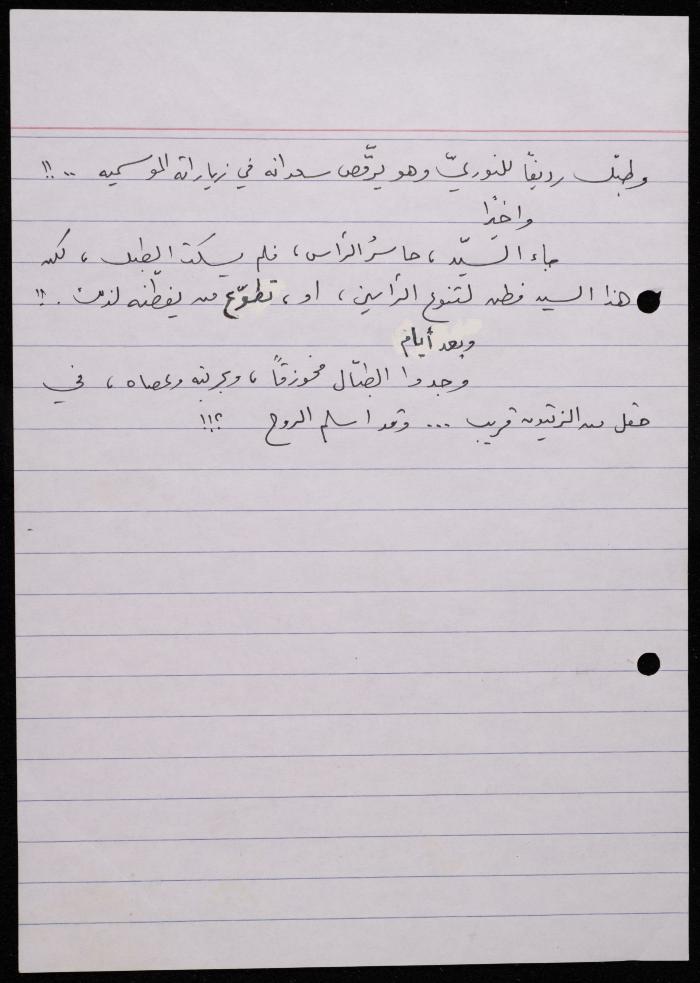 وطبّل رديفًا للنوريّ وهو يرقّص سعدانه في زياراته الموسميه ..!!
واخيرًا
جاء السيّد ، حاسرُ الرأس ، فلم يسكت الطبل ، لكن
هذا السيد فطن لتنوع الرأسين ، او ، تطوّع من يفطّنه لذلك .!!
وبعد أيام
وجدوا الطبّال مخوزقًا ، وبجرنبه وعصاه ، في
حقل من الزيتون قريب ... وقد اسلم الروح ؟!!